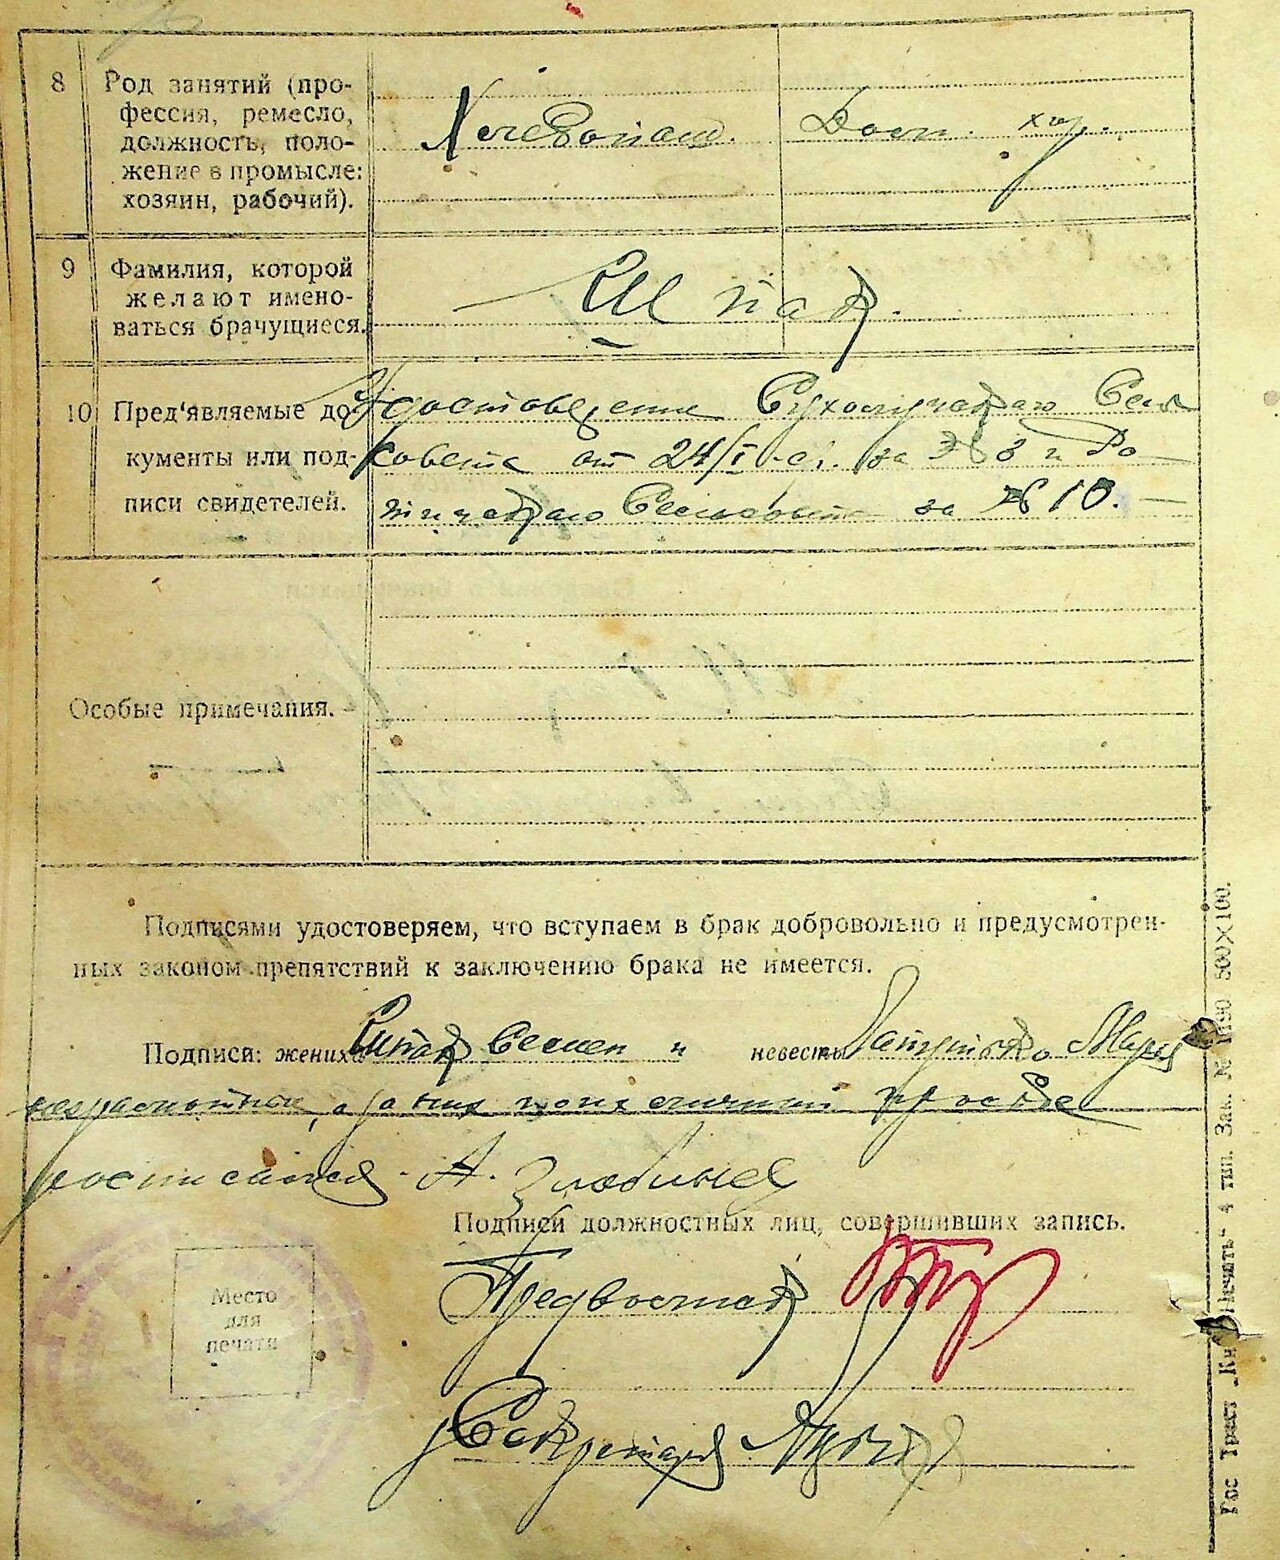 8 Род занятий (про-
фессия, ремесло,
должность, поло-
жение в промысле:
хозяин, рабочий).
Хлебопаш. Дом. хоз.
9 Фамилия, которой
желают имено-
ваться брачущиеся.
Шпак.
10 Пред'являемые до-
кументы или под-
писи свидетелей.
Удостоверение Сель
совета от 24/I за № 3 и
Сельсовета за № 10.
Особые примечания.
Подписями удостоверяем, что вступаем в брак добровольно и предусмотрен-
ных законом препятствий к заключению брака не имеется.
Подписи: жениха Шпак Семен и невесты Мария
неграмотная, а за них по их личной просьбе
росписался А.
Подписи должностных лиц, совершивших запись.
Место
для
печати
Пред
Секретарь
Гос Трест „Кн Печать“ 4 тип. Зак. № 1190 500X100.